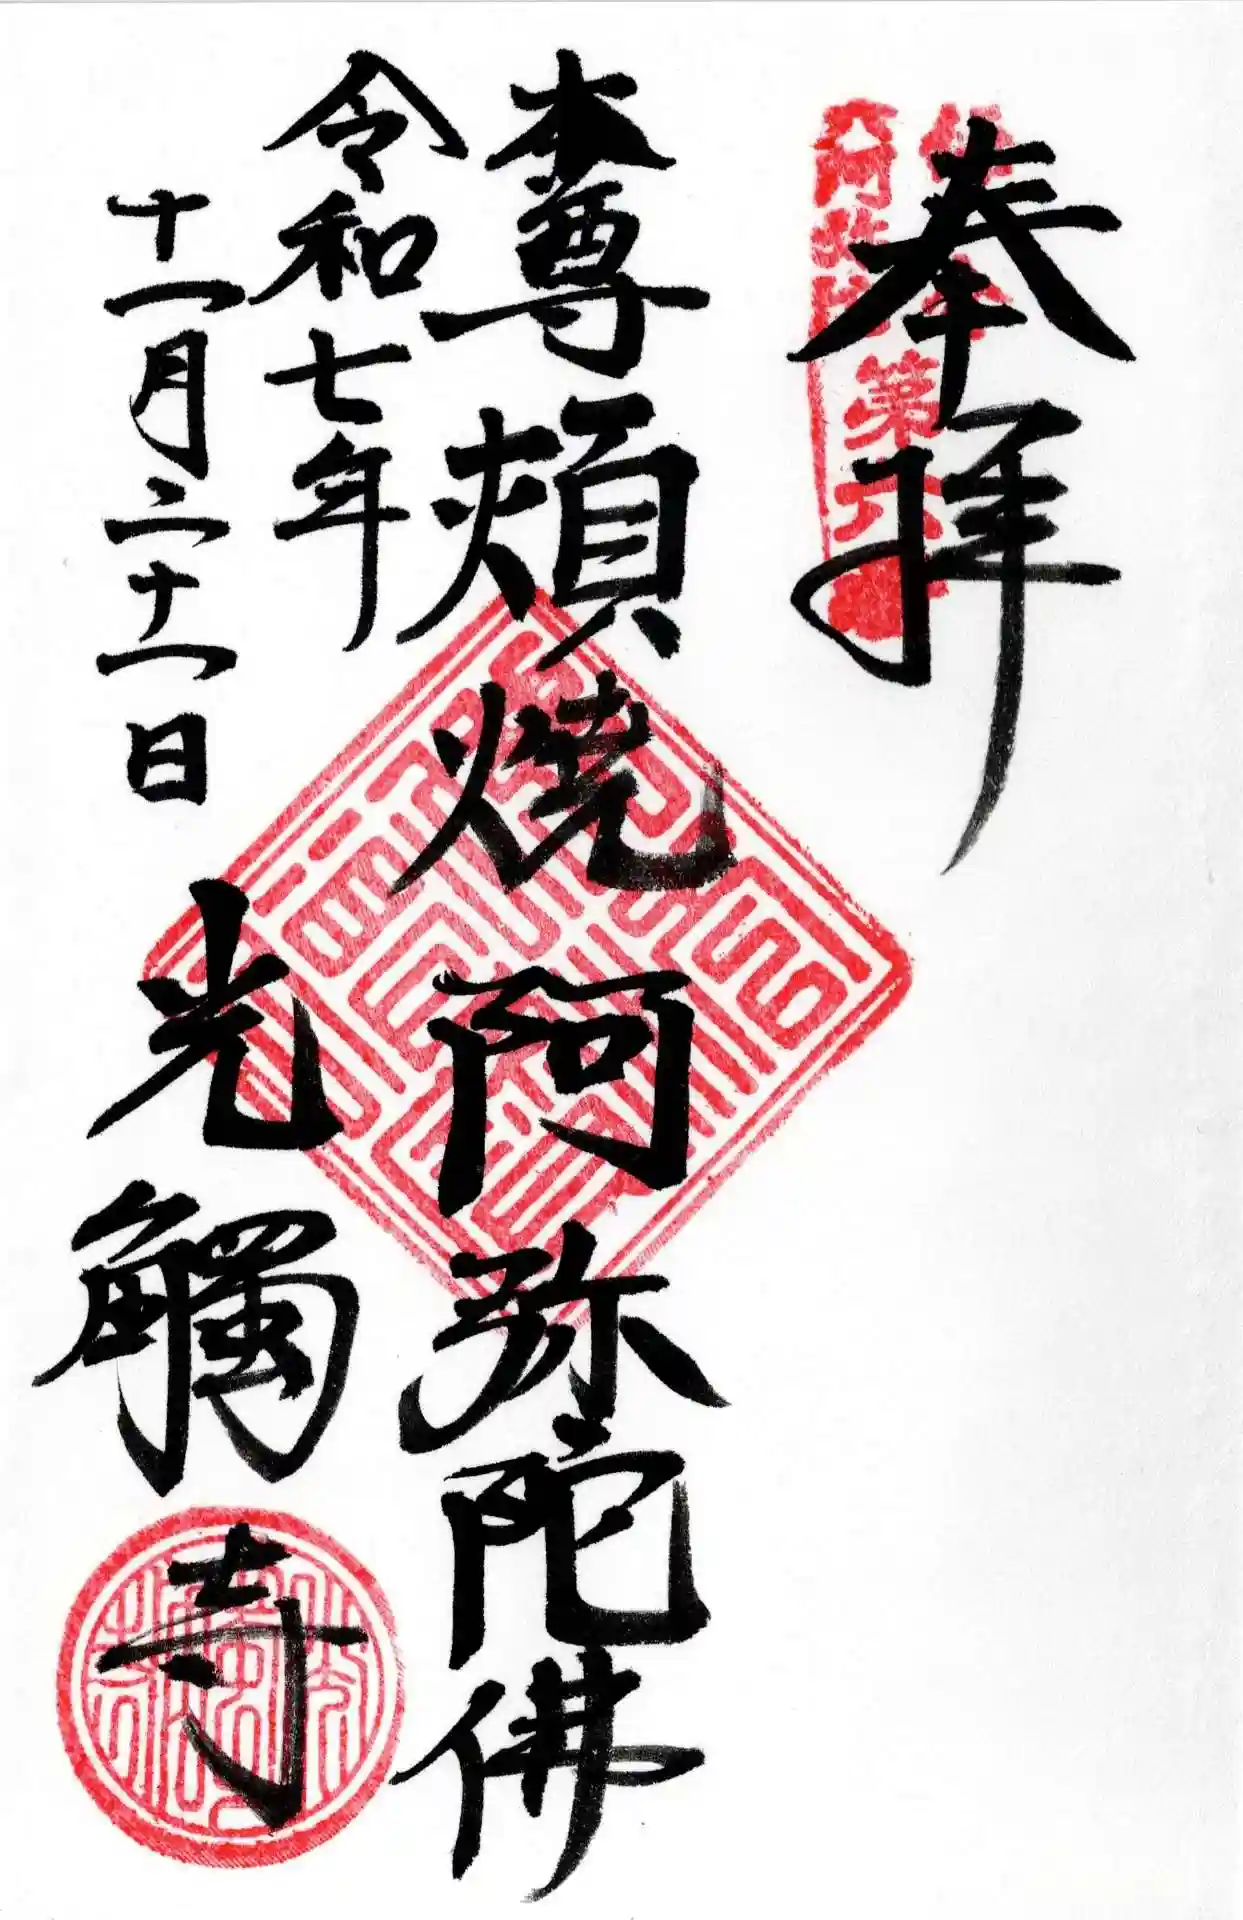 奉拝
第六
本尊頬焼阿弥陀佛
令和七年
十一月二十一日
光觸寺